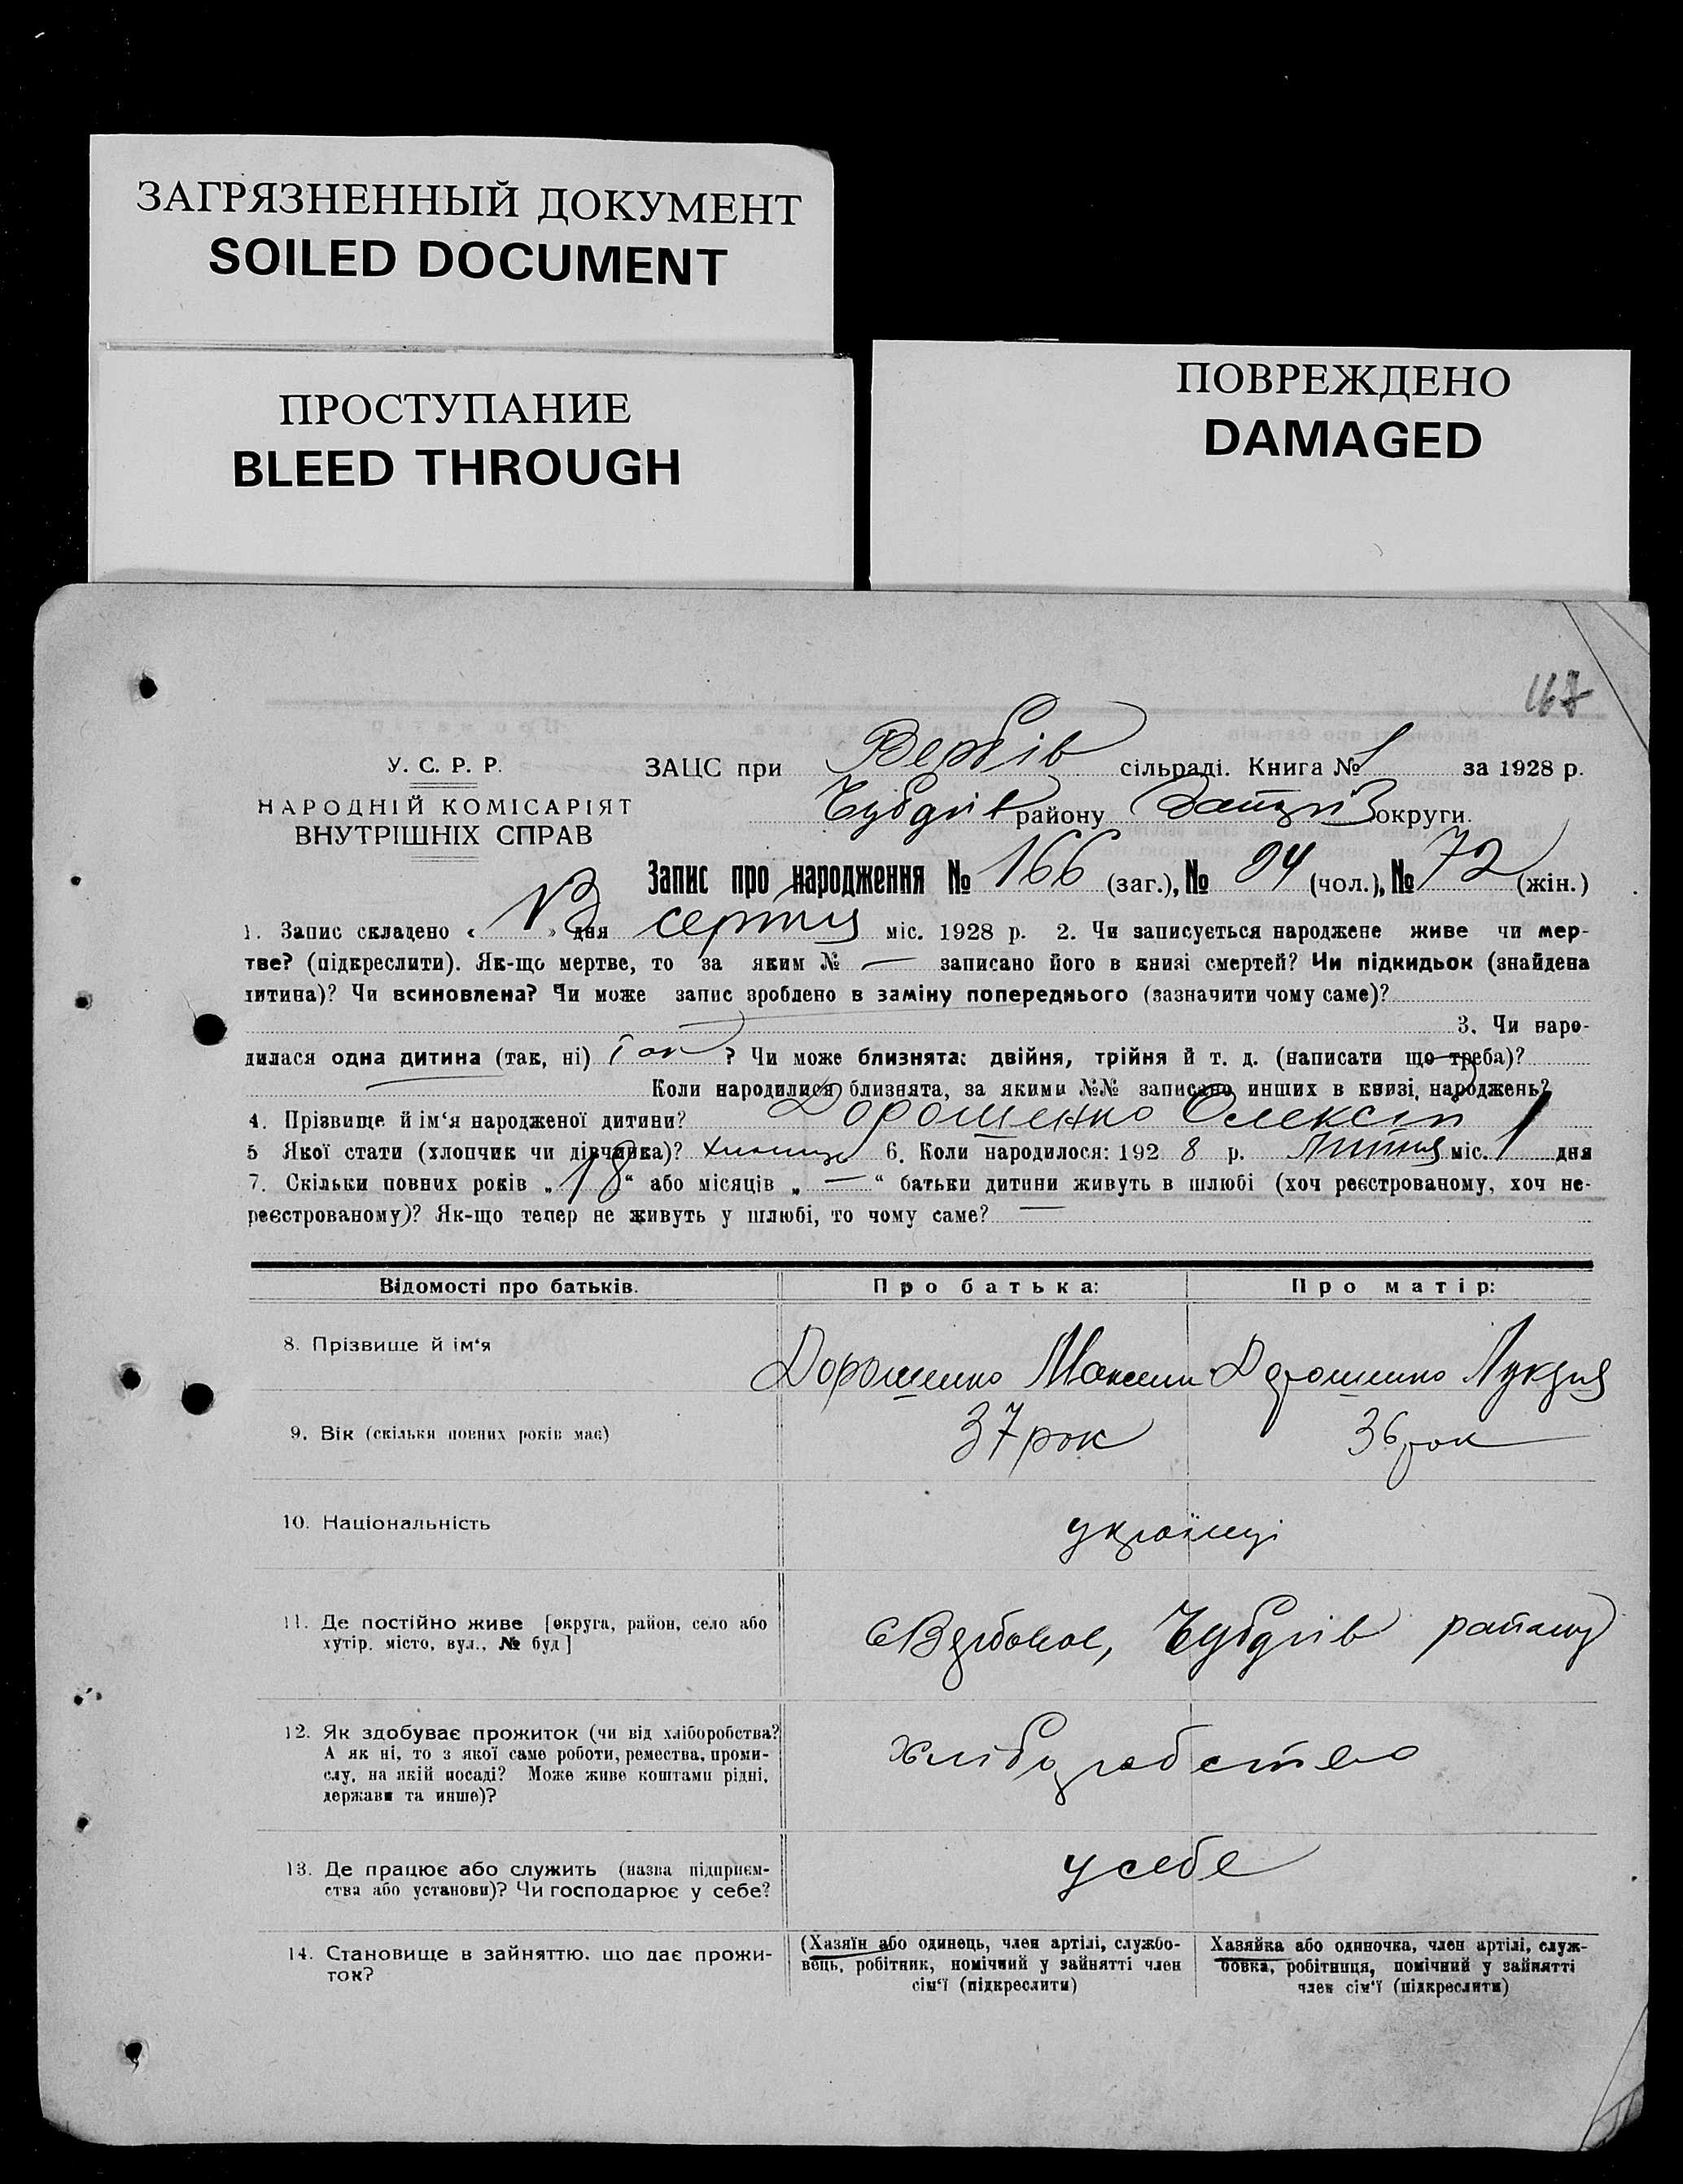 ЗАГРЯЗНЕННЫЙ ДОКУМЕНТ
SOILED DOCUMENT
ПРОСТУПАНИЕ
BLEED THROUGH
ПОВРЕЖДЕНО
DAMAGED
167
У. С. Р. Р.
НАРОДНІЙ КОМІСАРІЯТ
ВНУТРІШНІХ СПРАВ
ЗАЦС при Вербів сільраді. Книга № 1 за 1928 р.
Чубарів району Запоріз округи.
Запис про народження № 166 (заг.), № 94 (чол.), № 72 (жін.)
1. Запис складено « 13 » дня серпня міс. 1928 р. 2. Чи записується народжене живе чи мер-
тве? (підкреслити). Як-що мертве, то за яким № — записано його в книзі смертей? Чи підкидьок (знайдена
дитина)? Чи всиновлена? Чи може запис зроблено в заміну попереднього (зазначити чому саме)?
3. Чи наро-
дилася одна дитина (так, ні) так ? Чи може близнята: двійня, трійня й т. д. (написати що треба)?
Коли народилися близнята, за якими №№ записано инших в книзі, народжень?
4. Прізвище й ім‘я народженої дитини? Дорошенко Олексій
5 Якої стати (хлопчик чи дівчинка)? хлопець 6. Коли народилося: 192 8 р. Липня міс. 1 дня
7. Скільки повних років „ 18 “ або місяців „ — “ батьки дитини живуть в шлюбі (хоч реєстрованому, хоч не-
реєстрованому)? Як-що тепер не живуть у шлюбі, то чому саме? —
Відомості про батьків. Про батька: Про матір:
8. Прізвище й ім‘я Дорошенко Максим Дорошенко Лукдия
9. Вік (скільки повних років має) 37 рок 36 рок
10. Національність українці
11. Де постійно живе [округа, район, село або
хутір, місто, вул., № буд] с Вербове, Чубарів району
12. Як здобуває прожиток (чи від хліборобства?
А як ні, то з якої саме роботи, ремества, проми-
слу, на якій посаді? Може живе коштами рідні,
держави та инше)? хліборобство
13. Де працює або служить (назва підприєм-
ства або установи)? Чи господарює у себе? у себе
14. Становище в зайняттю, що дає прожи-
ток?
(Хазяїн або одинець, член артілі, службо-
вець, робітник, помічний у зайнятті член
сім‘ї (підкреслити)
Хазяйка або одиночка, член артілі, служ-
бовка, робітниця, помічний у зайнятті
член сім‘ї (підкреслити)